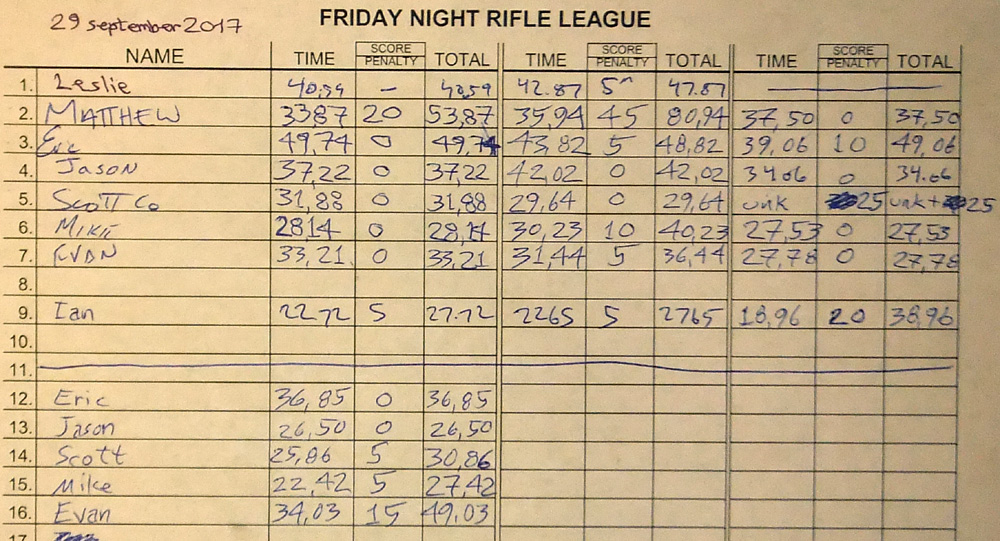 29 september 2017
FRIDAY NIGHT RIFLE LEAGUE
NAME TIME SCORE PENALTY TOTAL TIME SCORE PENALTY TOTAL TIME SCORE PENALTY TOTAL
1. Leslie 40,59 – 40,59 42.87 5 47.87
2. MATTHEW 3387 20 53,87 35,94 45 80,94 37,50 0 37,50
3. Eric 49,74 0 49,74 43,82 5 48,82 39,06 10 49,06
4. JASON 37,22 0 37,22 42,02 0 42,02 34.06 0 34.06
5. SCOTT Co 31,88 0 31,88 29,64 0 29,64 unk 25 unk + 25
6. MIKE 2814 0 28,14 30,23 10 40,23 27,53 0 27,53
7. EVAN 33,21 0 33,21 31,44 5 36,44 27,78 0 27,78
8.
9. Ian 22.72 5 27.72 2265 5 2765 18,96 20 38,96
10.
11.
12. Eric 36,85 0 36,85
13. Jason 26,50 0 26,50
14. Scott 25,86 5 30,86
15. Mike 22,42 5 27,42
16. Evan 34,03 15 49,03
17.